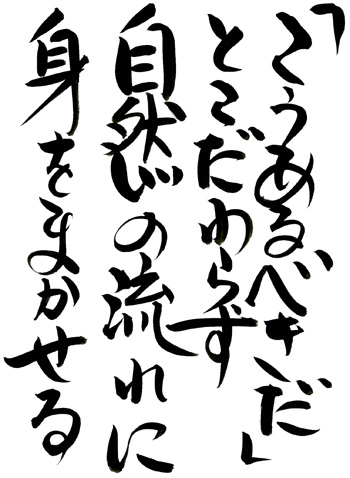 「こうあるべきだ」
とこだわらず
自然の流れに
身をまかせる